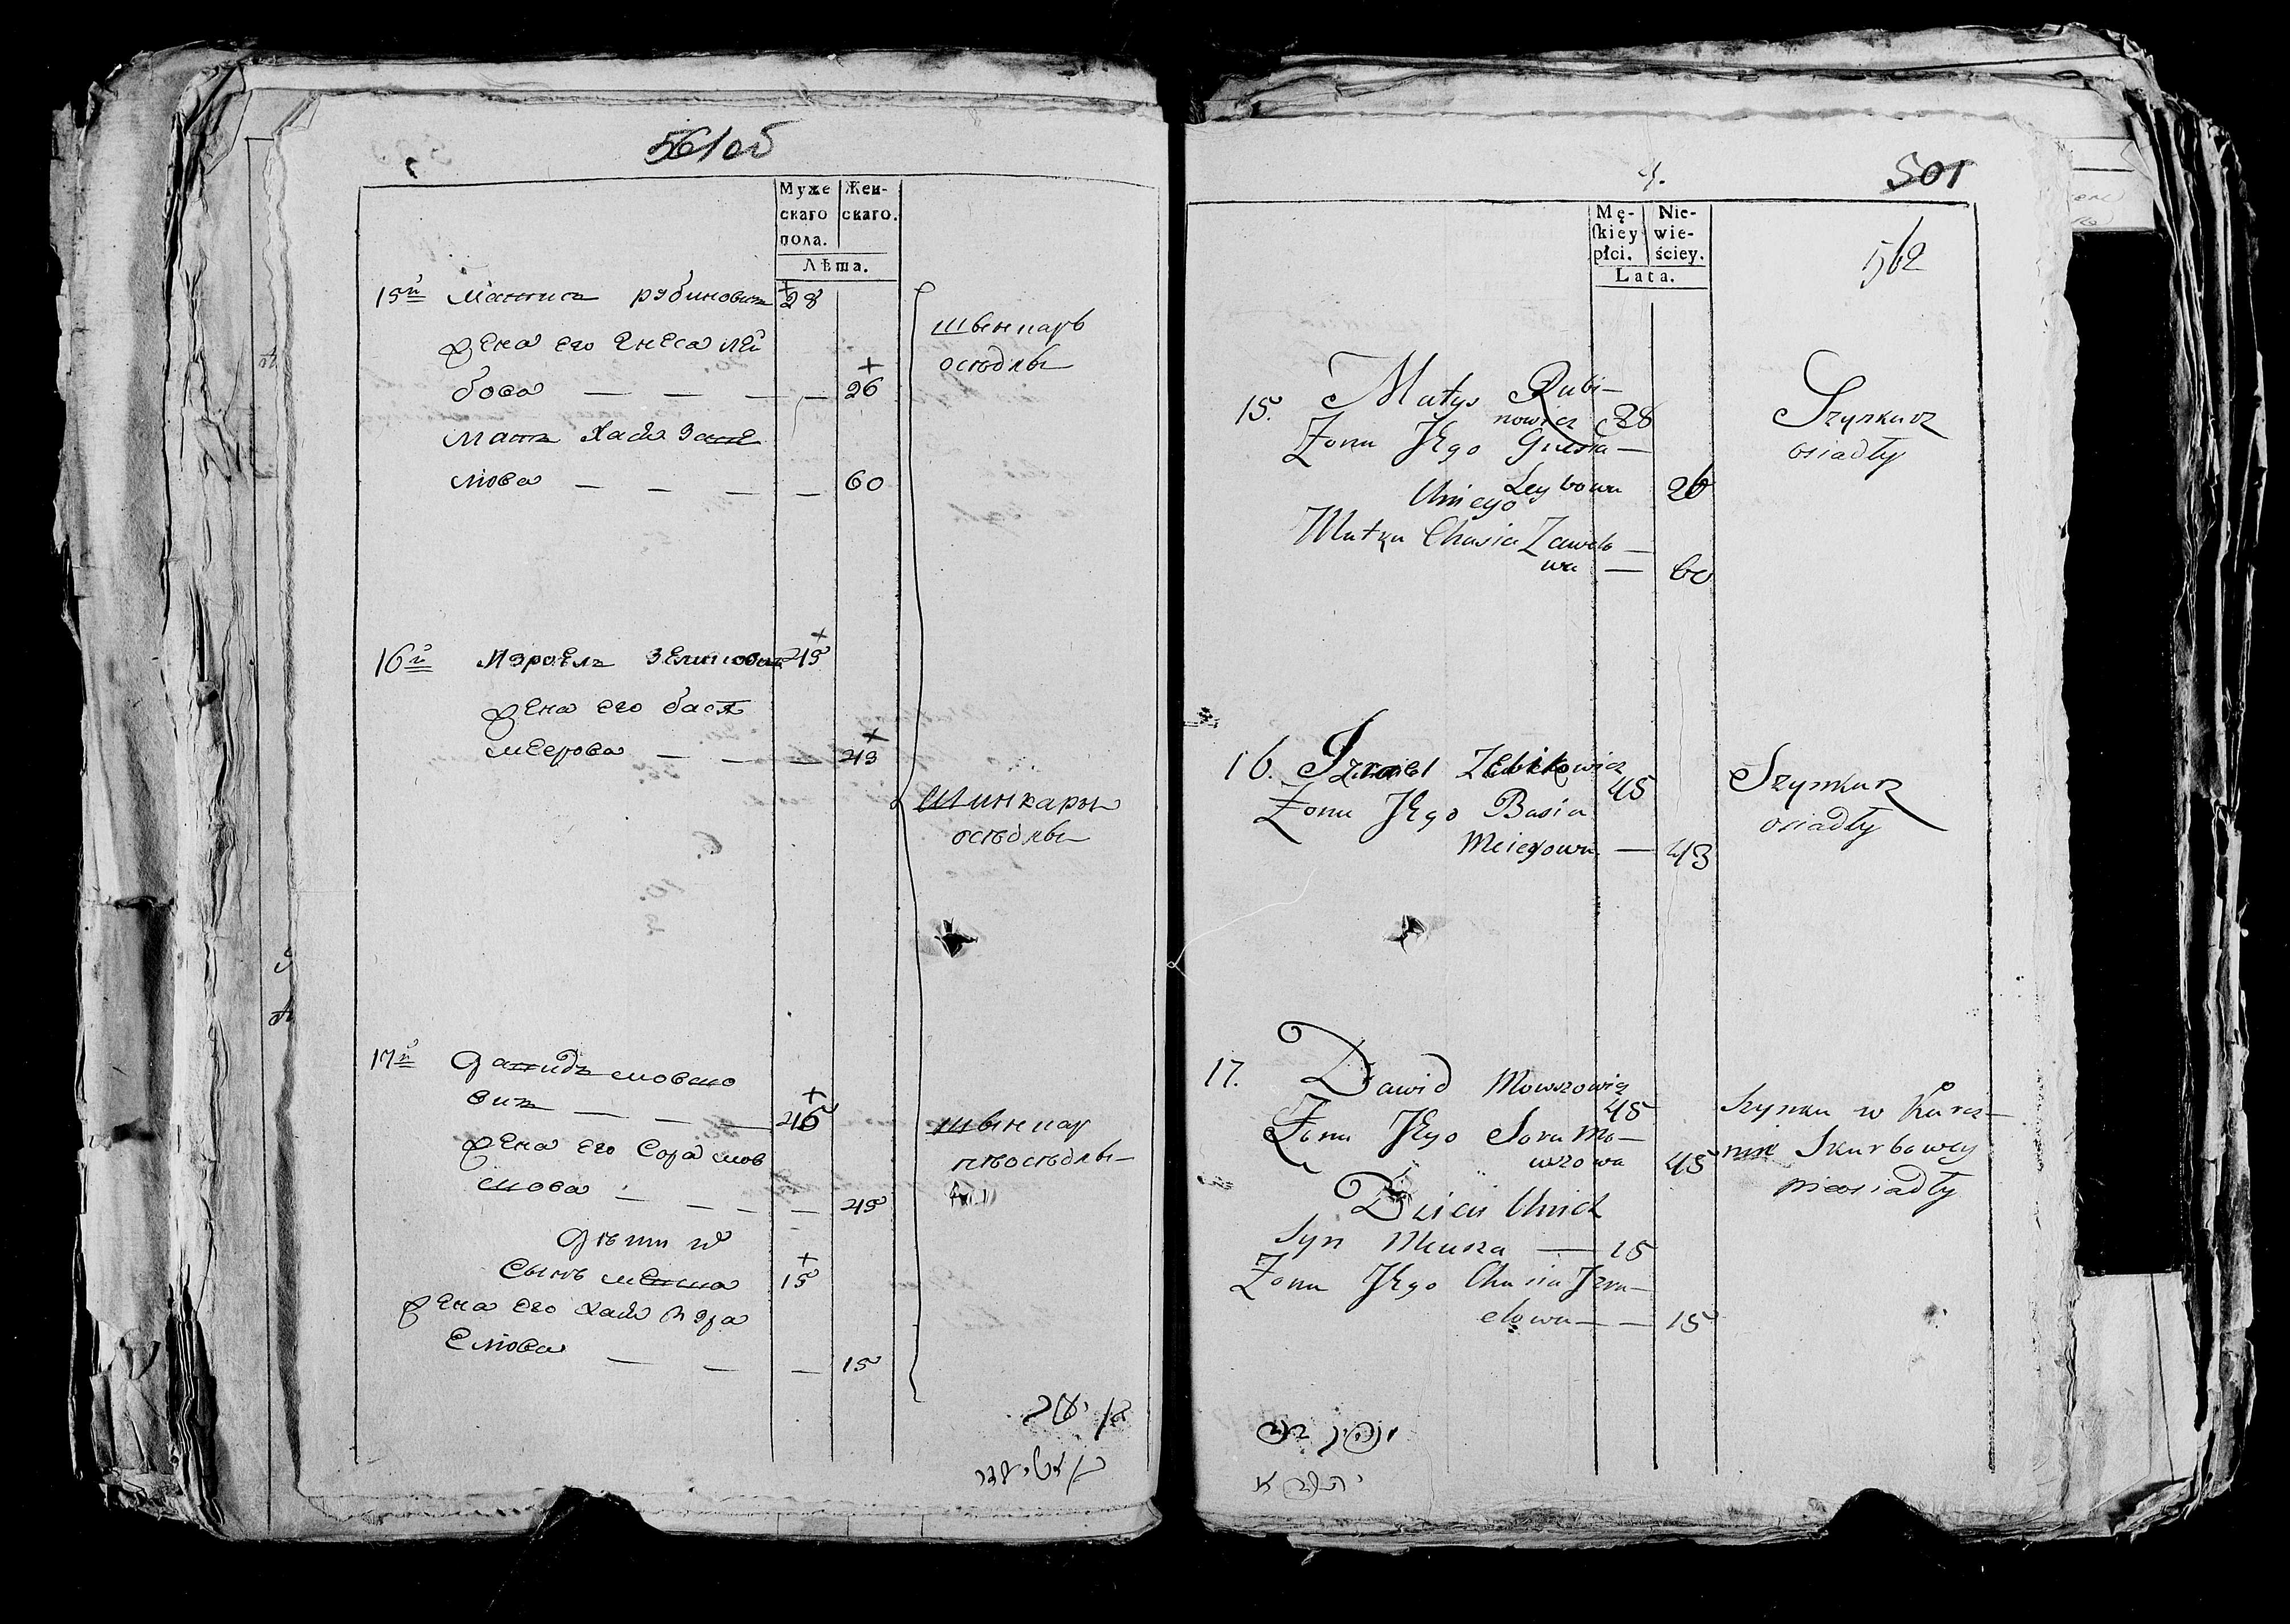 561об
Муже Жен-
скаго скаго.
пола.
Лѣта.
15й Матысъ рубиновичъ 28
жена его Гнеса Лей
бова — — — — 26
Мать Хася Завѣ
лiова — — — — 60
шынкарь
осѣдлы
16й Изроель Зеликовичъ 45
жена его бася
меерова — — — 43
Шинкары
осѣдлы
17й Давидъ мовшо
вичъ — — — 45
жена его Сора мов
шова — — — — 45
Дѣти ихъ
Сынъ меюша 15
жена его Хася Изра
елiова — — — 15
шынкар
нѣосѣдлы
4. 501
562
Mę- Nie-
skiey wie-
płci. ściey.
Lata.
15. Matys Rubi—
nowicz 28
Żona Jego Gnesia—
Leybowa 26
U niego
Matka Chasia Zawelo—
wa — 60
Szynkarz
osiadły
16. Izrael Zelikowicz
45
Żona Jego Basia
Meierowa — 43
Szynkarz
osiadły
17. Dawid Mowszowicz
45
Żona Jego Sora Mo—
wszowa 45
Dzieci U nich
Syn Meusza — 15
Żona Jego Chasia Izra—
elowa — — 15
Szynka w Karcz—
mie Skarbowey
nieosiadły